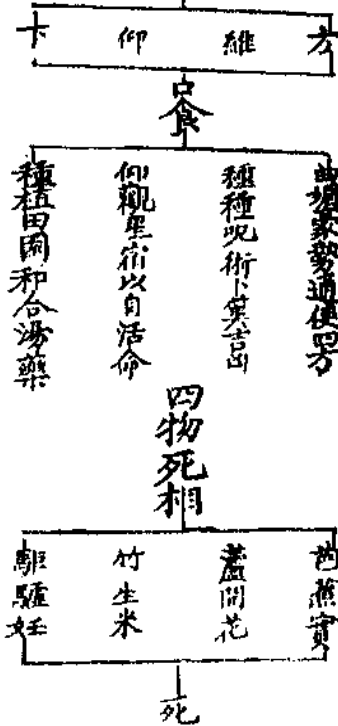 方
維
仰
下
口食
曲媚豪勢通使四方
種種呪術卜算吉凶
仰觀星宿以自活命
種植田園和合湯藥
四物死相
芭蕉實
蘆開花
竹生米
驢妊
死